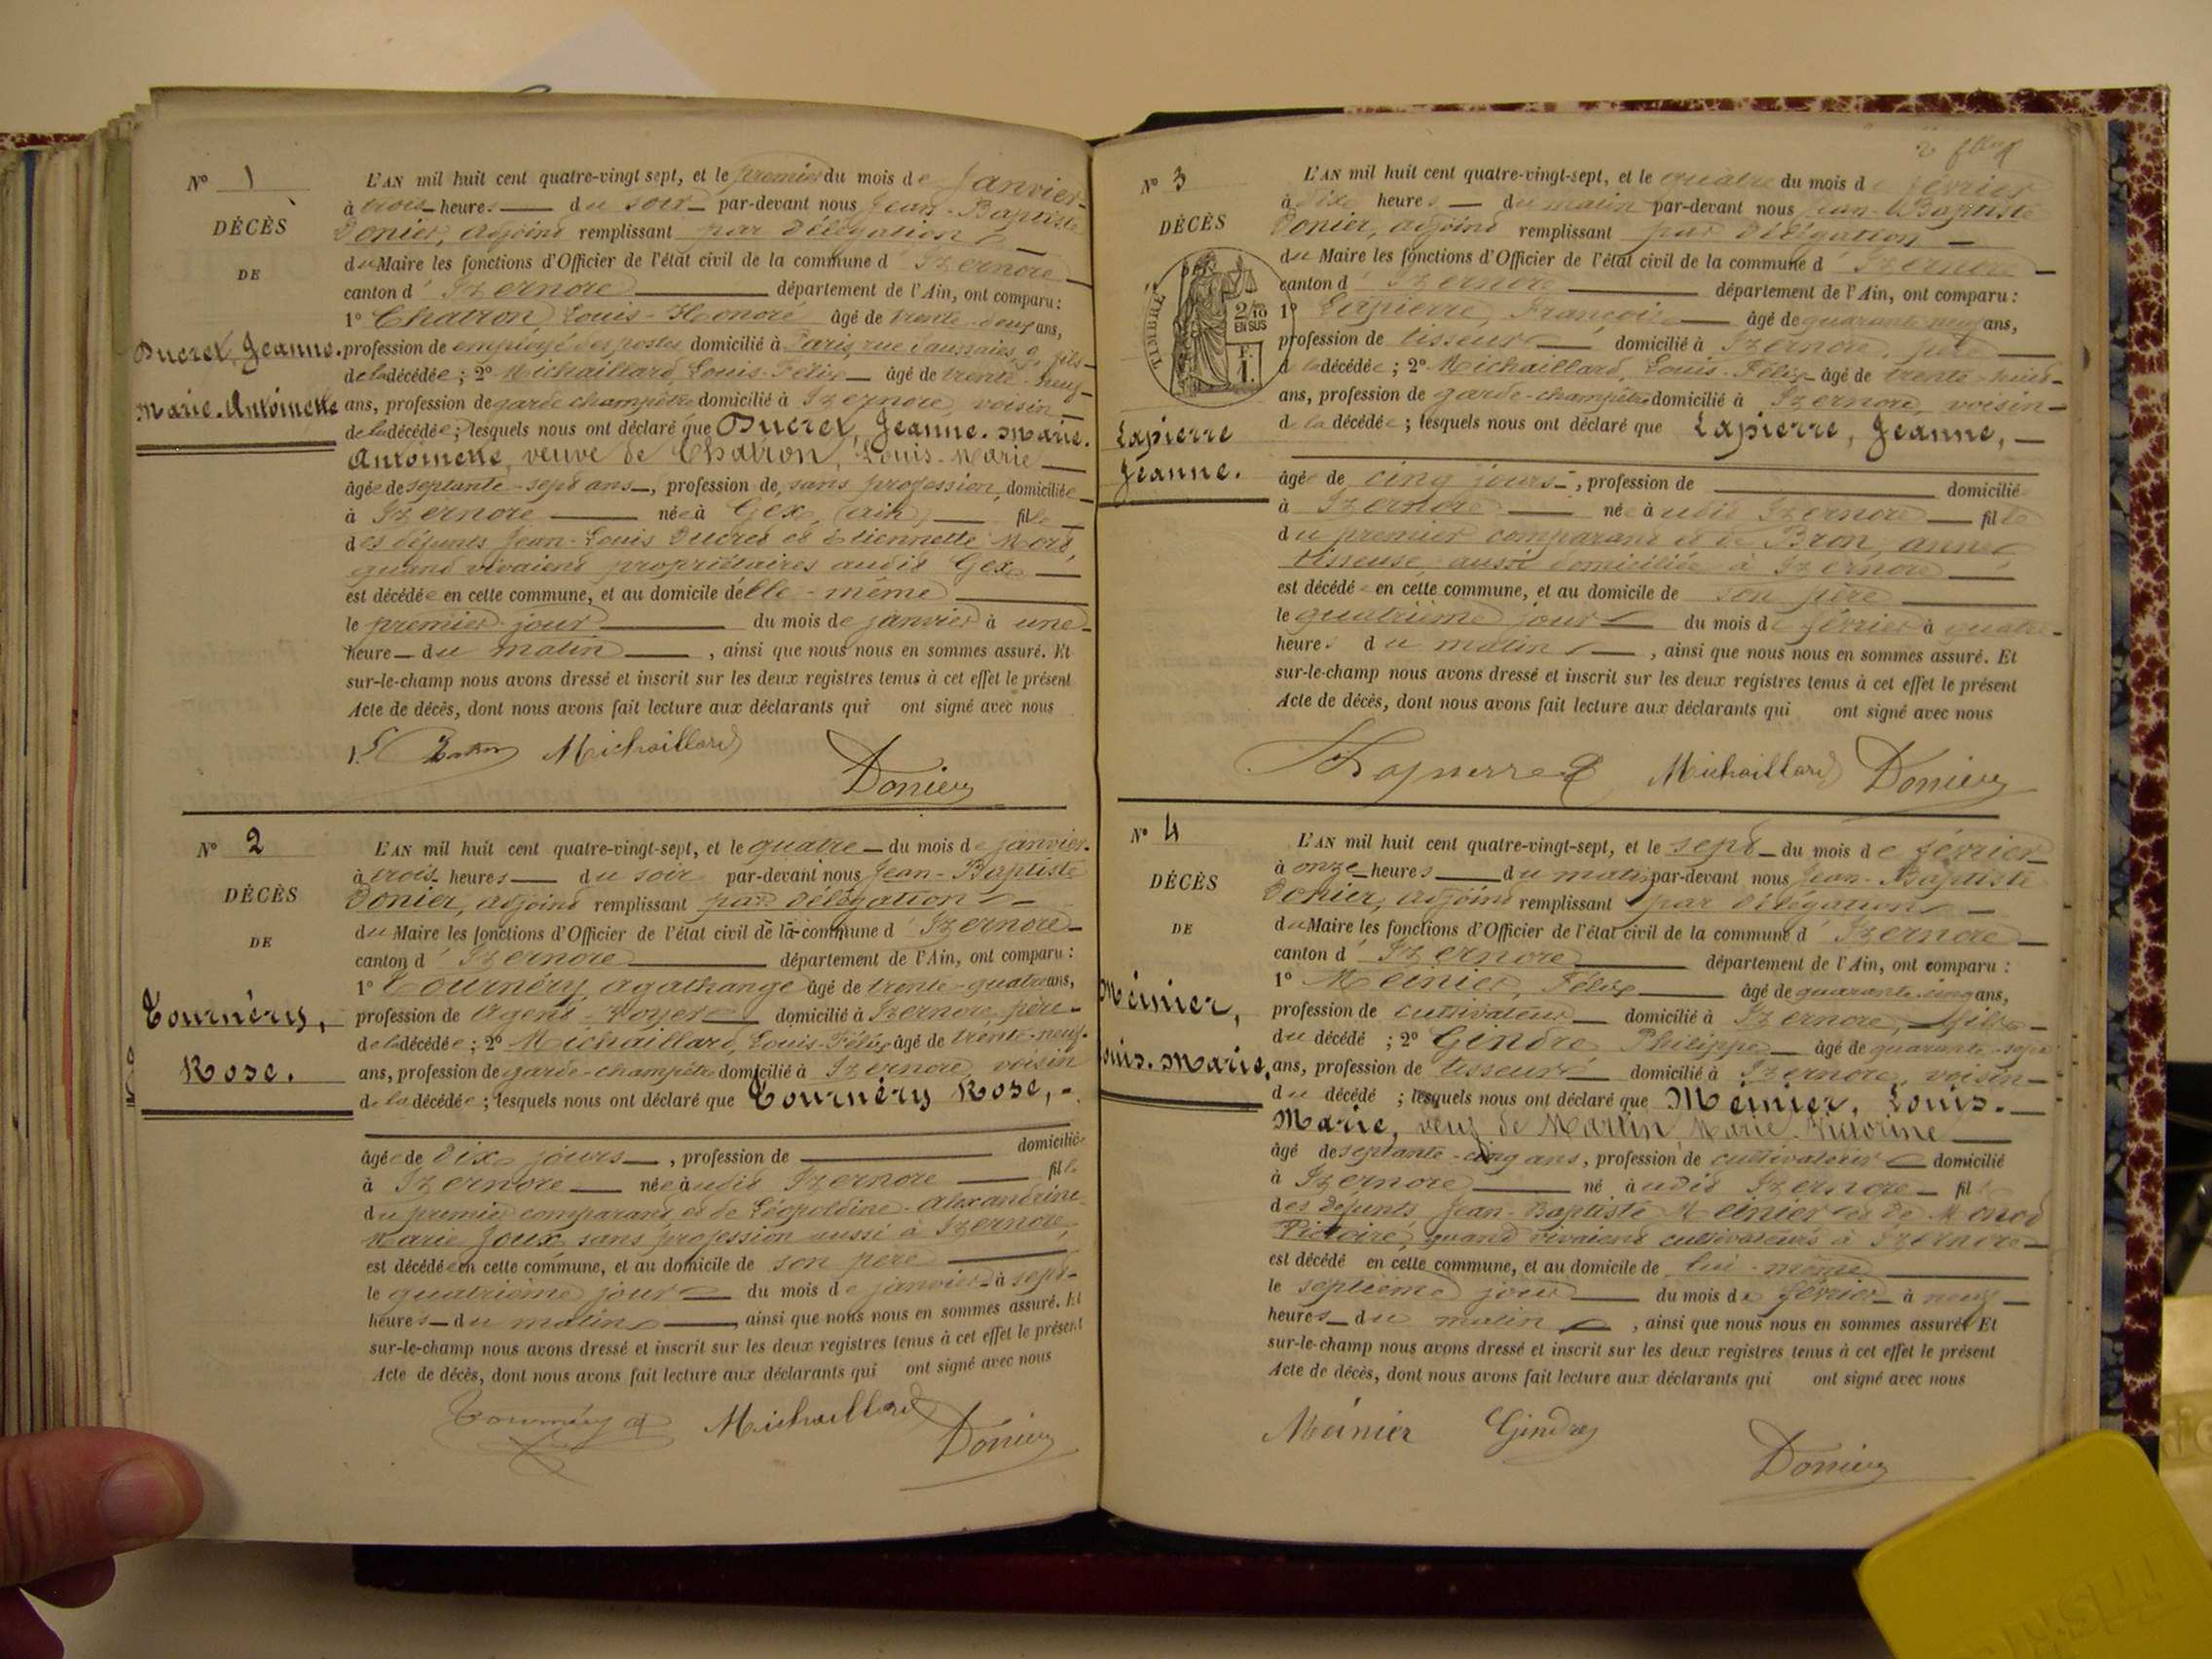 N° 1
DÉCÈS
DE
Ducret, Jeanne.
Marie. Antoinette
L'AN mil huit cent quatre-vingt sept, et le premier du mois de Janvier
à trois heures du soir par-devant nous Jean-Baptiste
Donier, adjoint remplissant par délégation
du Maire les fonctions d'Officier de l'état civil de la commune d'Izernore
canton d'Izernore département de l'Ain, ont comparu :
1° Chatron, Louis-Honoré âgé de trente-deux ans,
profession de employé des postes domicilié à Paris, rue 9, fils
de la décédée ; 2° Michaillard, Louis-Félix âgé de trente-neuf
ans, profession de garde champêtre domicilié à Izernore, voisin
de la décédée ; lesquels nous ont déclaré que Ducret, Jeanne. Marie.
Antoinette, veuve de Chatron, Louis-Marie
âgée de septante-sept ans, profession de, sans profession, domiciliée
à Izernore née à Gex, (ain) fille
des défunts Jean-Louis Ducret et Etiennette
quand vivaient propriétaires audit Gex
est décédée en cette commune, et au domicile d'elle-même
le premier jour du mois de janvier à une
heure du matin, ainsi que nous nous en sommes assuré. Et
sur-le-champ nous avons dressé et inscrit sur les deux registres tenus à cet effet le présent
Acte de décès, dont nous avons fait lecture aux déclarants qui ont signé avec nous
Michaillard
Donier
N° 2
DÉCÈS
DE
Tournéry,
Rose.
L'AN mil huit cent quatre-vingt-sept, et le quatre du mois de janvier
à trois heures du soir par-devant nous Jean-Baptiste
Donier, adjoint remplissant par délégation
du Maire les fonctions d'Officier de l'état civil de la commune d'Izernore
canton d'Izernore département de l'Ain, ont comparu :
1° Tournéry, agathange âgé de trente-quatre ans,
profession de Agent-Voyer domicilié à Izernore, père
de la décédée ; 2° Michaillard, Louis-Félix âgé de trente-neuf
ans, profession de garde-champêtre domicilié à Izernore, voisin
de la décédée ; lesquels nous ont déclaré que Tournéry Rose,
âgée de dix jours, profession de domiciliée
à Izernore née audit Izernore fille
du premier comparant et de Léopoldine-Alexandrine
Marie Joux, sans profession aussi à Izernore,
est décédée en cette commune, et au domicile de son père
le quatrième jour du mois de janvier à sept
heures du matin, ainsi que nous nous en sommes assuré. Et
sur-le-champ nous avons dressé et inscrit sur les deux registres tenus à cet effet le présent
Acte de décès, dont nous avons fait lecture aux déclarants qui ont signé avec nous
Tournéry Michaillard
Donier
N° 3
DÉCÈS
TIMBRÉ
2/10
EN SUS
Lapierre
Jeanne.
L'AN mil huit cent quatre-vingt-sept, et le quatre du mois de février
à dix heures du matin par-devant nous Jean-Baptiste
Donier, adjoint remplissant par délégation
du Maire les fonctions d'Officier de l'état civil de la commune d'Izernore
canton d'Izernore département de l'Ain, ont comparu :
1° Lapierre, François âgé de quarante neuf ans,
profession de tisseur domicilié à Izernore, père
de la décédée ; 2° Michaillard, Louis-Félix âgé de trente-neuf
ans, profession de garde-champêtre domicilié à Izernore, voisin
de la décédée ; lesquels nous ont déclaré que Lapierre, Jeanne,
âgée de cinq jours, profession de domicilié
à Izernore née audit Izernore fille
du premier comparant et de Bron, anne
tisseuse, aussi domiciliée à Izernore
est décédée en cette commune, et au domicile de son père
le quatrième jour du mois de février à quatre
heures du matin, ainsi que nous nous en sommes assuré. Et
sur-le-champ nous avons dressé et inscrit sur les deux registres tenus à cet effet le présent
Acte de décès, dont nous avons fait lecture aux déclarants qui ont signé avec nous
Lapierre Michaillard Donier
N° 4
DÉCÈS
DE
Meinier,
Louis. Marie.
L'AN mil huit cent quatre-vingt-sept, et le sept du mois de février
à onze heures du matin par-devant nous Jean-Baptiste
Donier, adjoint remplissant par délégation
du Maire les fonctions d'Officier de l'état civil de la commune d'Izernore
canton d'Izernore département de l'Ain, ont comparu :
1° Meinier, Félix âgé de quarante-cinq ans,
profession de cultivateur domicilié à Izernore, fils
du décédé ; 2° Gindre, Philippe âgé de quarante-sept
ans, profession de tisseur domicilié à Izernore, voisin
du décédé ; lesquels nous ont déclaré que Meinier, Louis.
Marie, veuf de Martin, Marie Victorine
âgé de septante-cinq ans, profession de cultivateur domicilié
à Izernore né audit Izernore fils
des défunts Jean-Baptiste Meinier et de
quand vivaient cultivateurs à Izernore
est décédé en cette commune, et au domicile de lui-même
le septième jour du mois de février à neuf
heures du matin, ainsi que nous nous en sommes assuré. Et
sur-le-champ nous avons dressé et inscrit sur les deux registres tenus à cet effet le présent
Acte de décès, dont nous avons fait lecture aux déclarants qui ont signé avec nous
Meinier Gindre
Donier